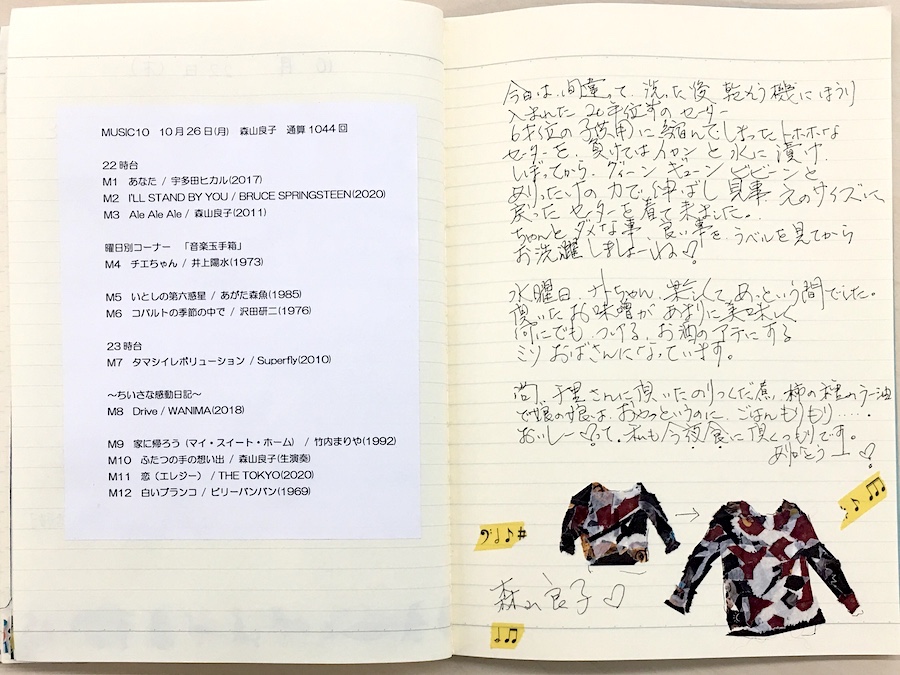 MUSIC10 10月26日(月) 森山良子 通算1044回
22時台
M1 あなた / 宇多田ヒカル(2017)
M2 I'LL STAND BY YOU / BRUCE SPRINGSTEEN(2020)
M3 Ale Ale Ale / 森山良子(2011)
曜日別コーナー 「音楽玉手箱」
M4 チエちゃん / 井上陽水(1973)
M5 いとしの第六惑星 / あがた森魚(1985)
M6 コバルトの季節の中で / 沢田研二(1976)
23時台
M7 タマシイレボリューション / Superfly(2010)
~ちいさな感動日記~
M8 Drive / WANIMA(2018)
M9 家に帰ろう(マイ・スイート・ホーム) / 竹内まりや(1992)
M10 ふたつの手の想い出 / 森山良子(生演奏)
M11 恋(エレジー) / THE TOKYO(2020)
M12 白いブランコ / ビリーバンバン(1969)
今日は、間違って、洗った後 乾そう機にほうり
入まれた 20年位前のセーター
6才位の子供用に縮んでしまったトホホな
セーターを、負けてはイカンと水に漬け、
しぼってから、グィーン ギューン ビビーンと
ありったけの力で、伸ばし 見事 元のサイズに
戻ったセーターを着て来ました。
ちゃんと ダメな事 良い事を ラベルを見てから
お洗濯しましょーね♡
水曜日 ちゃん、楽しくて あっという間でした。
頂いたお味噌が あまりに美味しく
何にでも つける、お酒のアテにする
ミソおばさんになっています。
さんに頂いたのりつくだ煮、柿の種のラー油
で娘の娘は、おやつというのに、ごはんもりもり.....
おいしー♡って、私も今夜食に頂くつもりです。
ありがとうー♡
森山良子♡